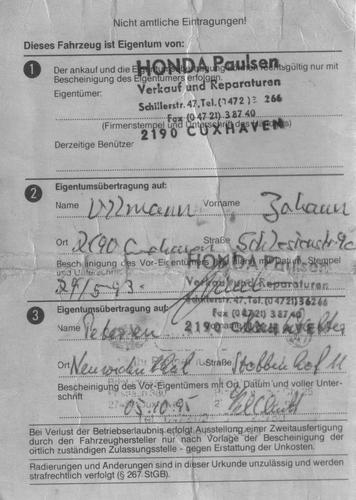 Nicht amtliche Eintragungen!
Dieses Fahrzeug ist Eigentum von:
1 Der ankauf und die rechtsgültig nur mit
Bescheinigung des Eigentümers erfolgen.
HONDA Paulsen
Verkauf und Reparaturen
Eigentümer:
Schillerstr. 47, Tel. 266
Fax (0 47 21) 3 87 40
(Firmenstempel und Unterschrift des
2190 CUXHAVEN
Derzeitige Benutzer
2 Eigentumsübertragung auf:
Name Ullmann Vorname Johann
Ort 2190 Cuxhaven Straße
Bescheinigung des Vor-Eigentümers mit Datum, Stempel
und Unterschrift
HONDA Paulsen
24/5-93.
Verkauf und Reparaturen
3 Eigentumsübertragung auf:
Name Petersen
2190
Ort Straße
Bescheinigung des Vor-Eigentümers mit Ort, Datum und voller Unter-
schrift
05.10.95
Bei Verlust der Betriebserlaubnis erfolgt Ausstellung einer Zweitausfertigung
durch den Fahrzeughersteller nur nach Vorlage der Bescheinigung der
örtlich zuständigen Zulassungsstelle - gegen Erstattung der Unkosten.
Radierungen und Änderungen sind in dieser Urkunde unzulässig und werden
strafrechtlich verfolgt (§ 267 StGB).